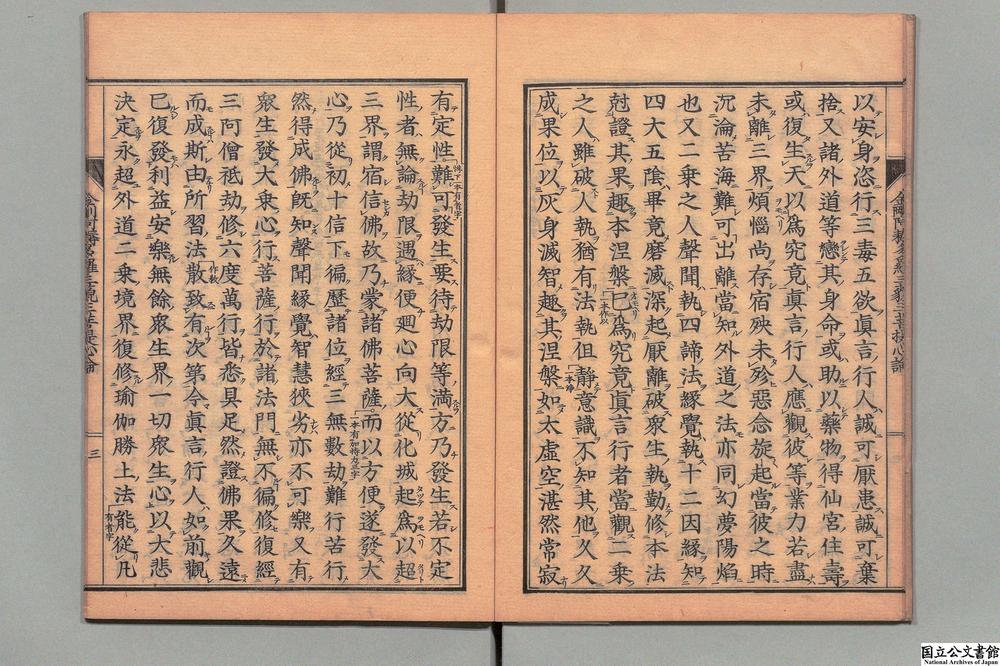 以安身恣行三毒五欲眞言行人誠可厭患誠可棄
捨又諸外道等戀其身命或助以藥物得仙宮住壽
或復生天以爲究竟眞言行人應觀彼等業力若盡
未離三界煩惱尚存宿殃未殄惡念旋起當彼之時
沉淪苦海難可出離當知外道之法亦同幻夢陽焰
也又二乗之人聲聞執四諦法緣覺執十二因緣知
四大五陰畢竟磨滅深起厭離破衆生執勤修本法
尅證其果趣本涅槃已爲究竟眞言行者當觀二乗
之人雖破人執猶有法執但靜意識不知其他久久
成果位以灰身滅智趣其涅槃如太虛空湛然常寂
有定性難可發生要待劫限等滿方乃發生若不定
性者無論劫限遇緣便廻心向大從化城起爲以超
三界謂宿信佛故乃蒙諸佛菩薩而以方便遂發大
心乃從初十信下徧歷諸位經三無數劫難行苦行
然得成佛旣知聲聞緣覺智慧狹劣亦不可樂又有
衆生發大乗心行菩薩行於諸法門無不徧修復經
三阿僧祇劫修六度萬行皆悉具足然證佛果久遠
而成斯由所習法散致有次第今眞言行人如前觀
已復發利益安樂無餘衆生界一切衆生心以大悲
決定永超外道二乗境界復修瑜伽勝上法能從凡
金剛阿耨多羅三藐三菩提心論
三
国立公文書館
National Archives of Japan